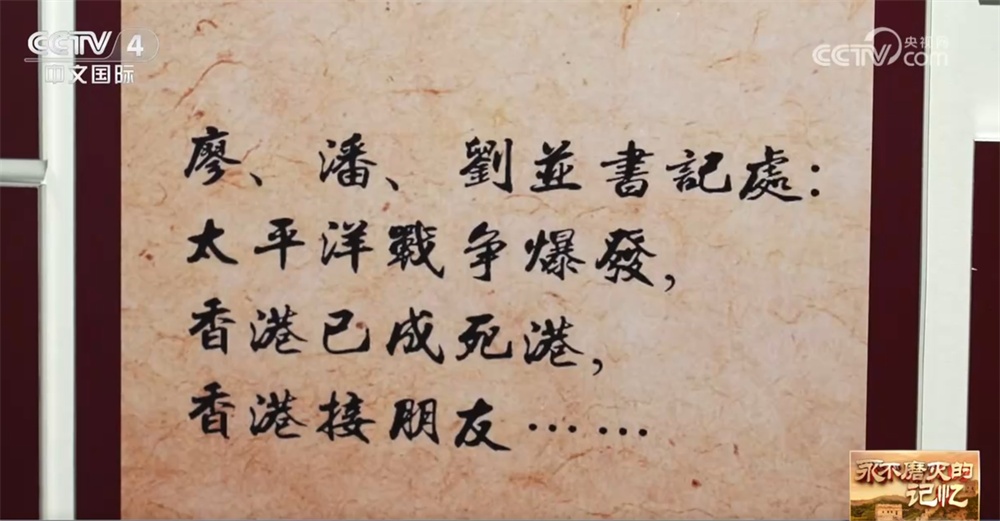 CCTV 4
中文国际
央视网
CCTV.com
廖、潘、劉並書記處：
太平洋戰争爆發，
香港已成死港，
香港接朋友……
永不磨灭的
记忆